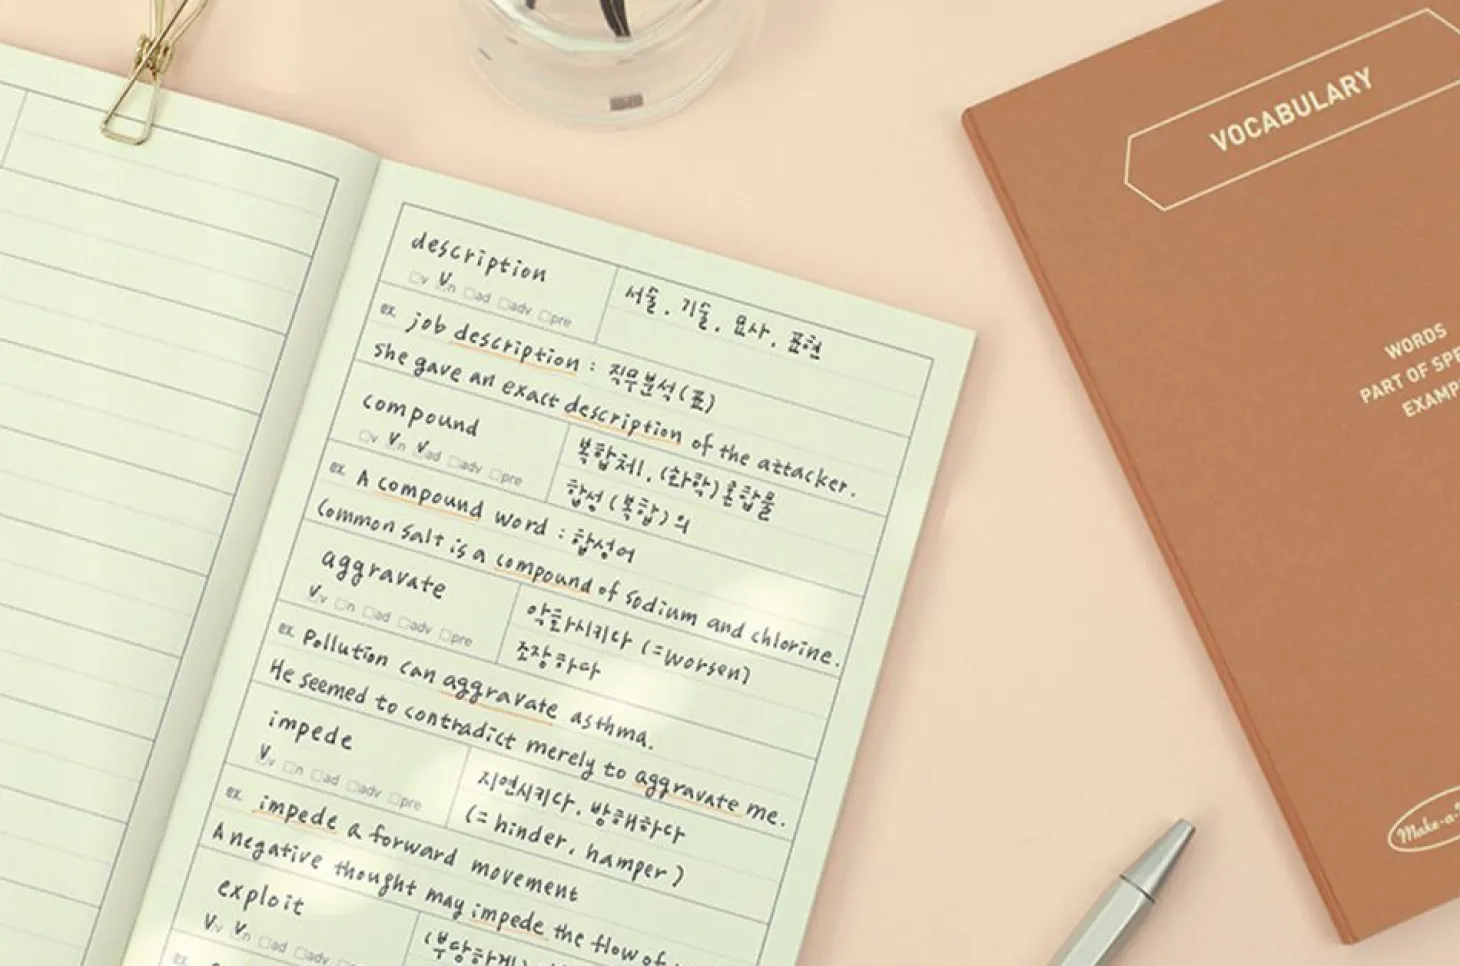 description
v n ad adv pre
서술, 기술, 묘사, 표현
ex. job description : 직무분석(표)
She gave an exact description of the attacker.
compound
v n ad adv pre
복합체, (화학)혼합물
합성(복합)의
ex. A compound word : 합성어
Common salt is a compound of sodium and chlorine.
aggravate
v n ad adv pre
악화시키다 (=worsen)
조장하다
ex. Pollution can aggravate asthma.
He seemed to contradict merely to aggravate me.
impede
v n ad adv pre
지연시키다, 방해하다
(= hinder, hamper)
ex. impede a forward movement
A negative thought may impede the flow of
exploit
v n ad adv
(부당하게)
ex.
VOCABULARY
WORDS
PART OF SPE
EXAMP
Make-a-